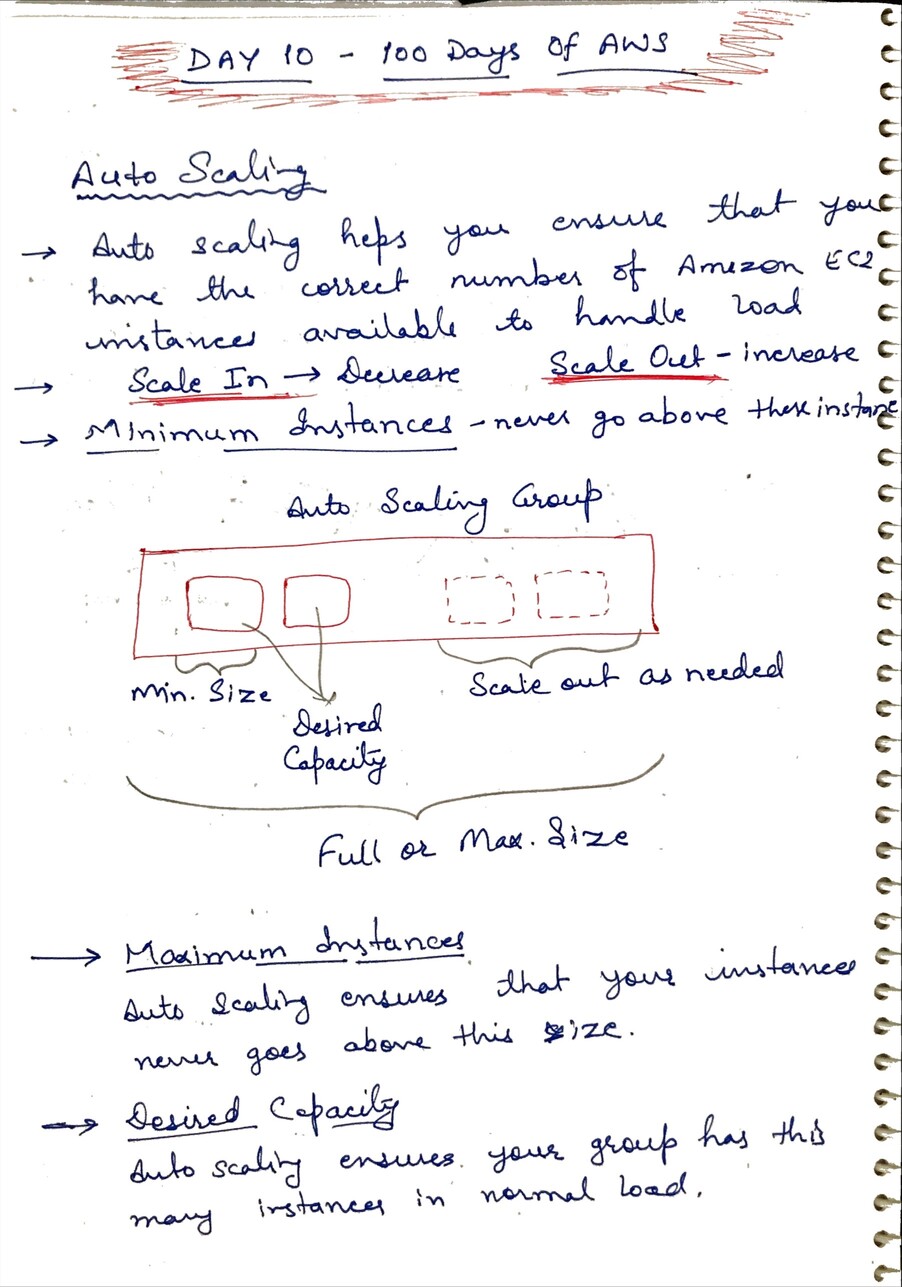 DAY 10 - 100 Days Of AWS
Auto Scaling
→ Auto scaling heps you ensure that you
have the correct number of Amezon EC2
instances available to handle load
→ Scale In → Decrease Scale Out - increase
→ Minimum Instances - never go above these instance
Auto Scaling Group
Min. Size
Scale out as needed
Desired
Capacity
Full or Max. Size
→ Maximum Instances
Auto Scaling ensures that your instances
never goes above this size.
→ Desired Capacity
Auto scaling ensures your group has this
many instances in normal load.